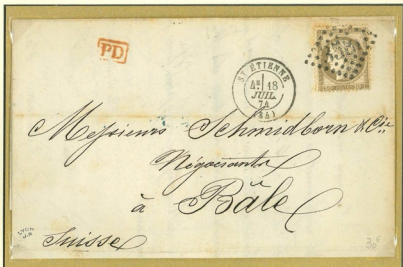 PD
ST ETIENNE
18
JUIL.
74
(84)
Messieurs Schmidborn & Cie
Négociants
à Bâle
Suisse
30